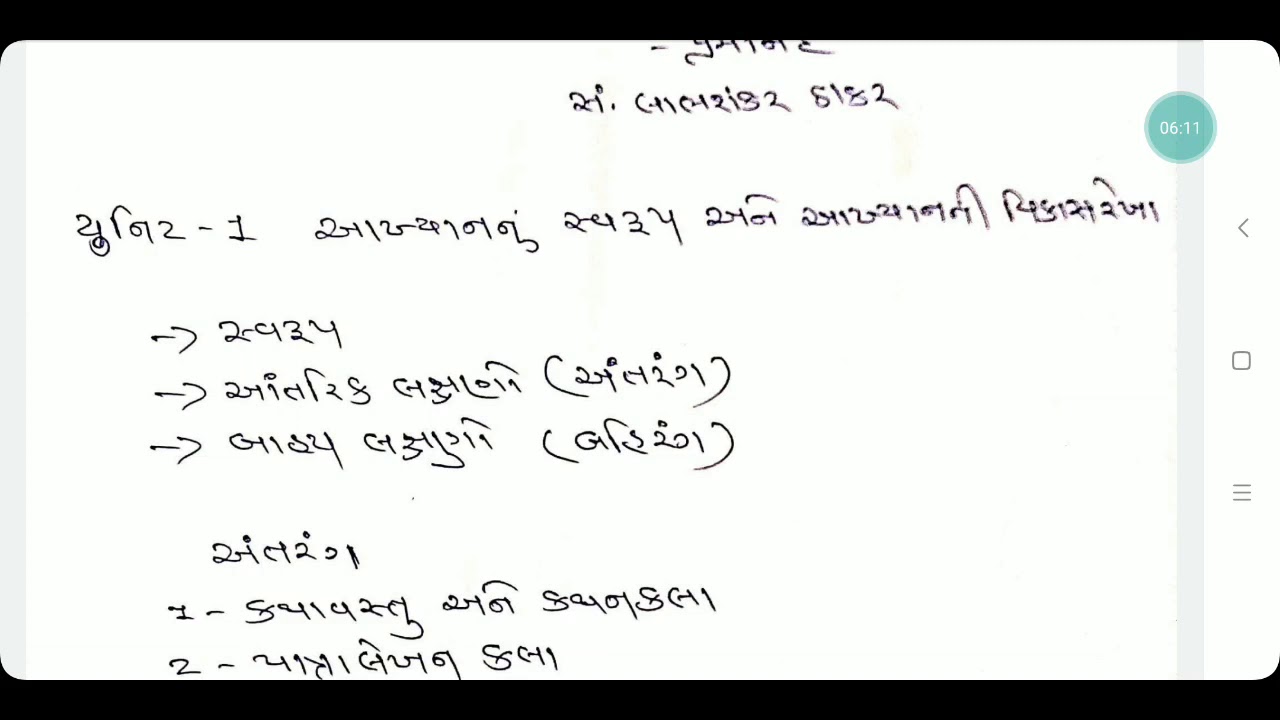 - પ્રેમાનંદ
સં. લાભશંકર ઠાકર
06:11
યુનિટ - 1 આખ્યાનનું સ્વરૂપ અને આખ્યાનની વિકાસરેખા
-> સ્વરૂપ
-> આંતરિક લક્ષણો (અંતરંગ)
-> બાહ્ય લક્ષણો (બહિરંગ)
અંતરંગ
1 - કથાવસ્તુ અને કથનકલા
2 - પાત્રાલેખન કલા